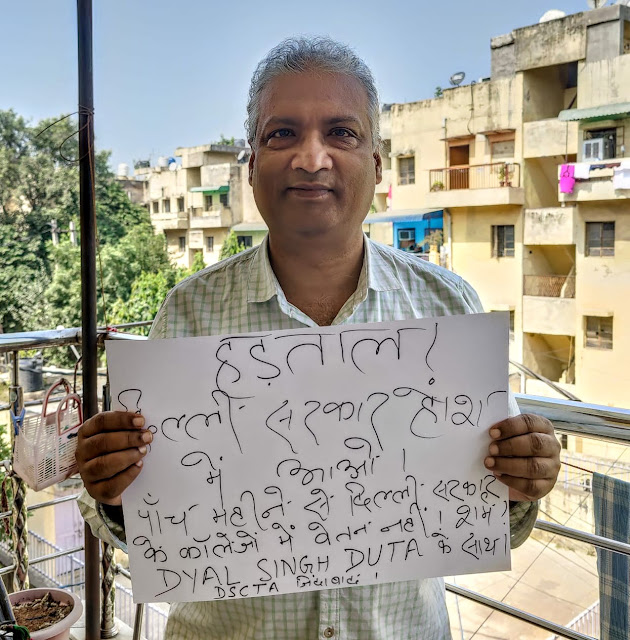 हड़ताल!
दिल्ली सरकार होश
में आओ!
पाँच महीने से दिल्ली सरकार
के कॉलेजों में वेतन नहीं! शर्म!
DYAL SINGH DUTA के साथ!
DSCTA जिंदाबाद!